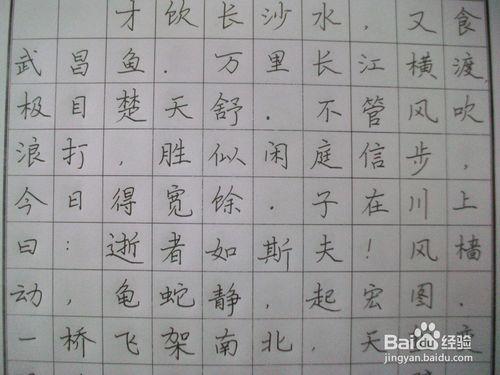 才饮长沙水，又食
武昌鱼．万里长江横渡，
极目楚天舒．不管风吹
浪打，胜似闲庭信步，
今日得宽馀．子在川上
曰：逝者如斯夫！风樯
动，龟蛇静，起宏图．
一桥飞架南北，天
Baidu经验
jingyan.baidu.com